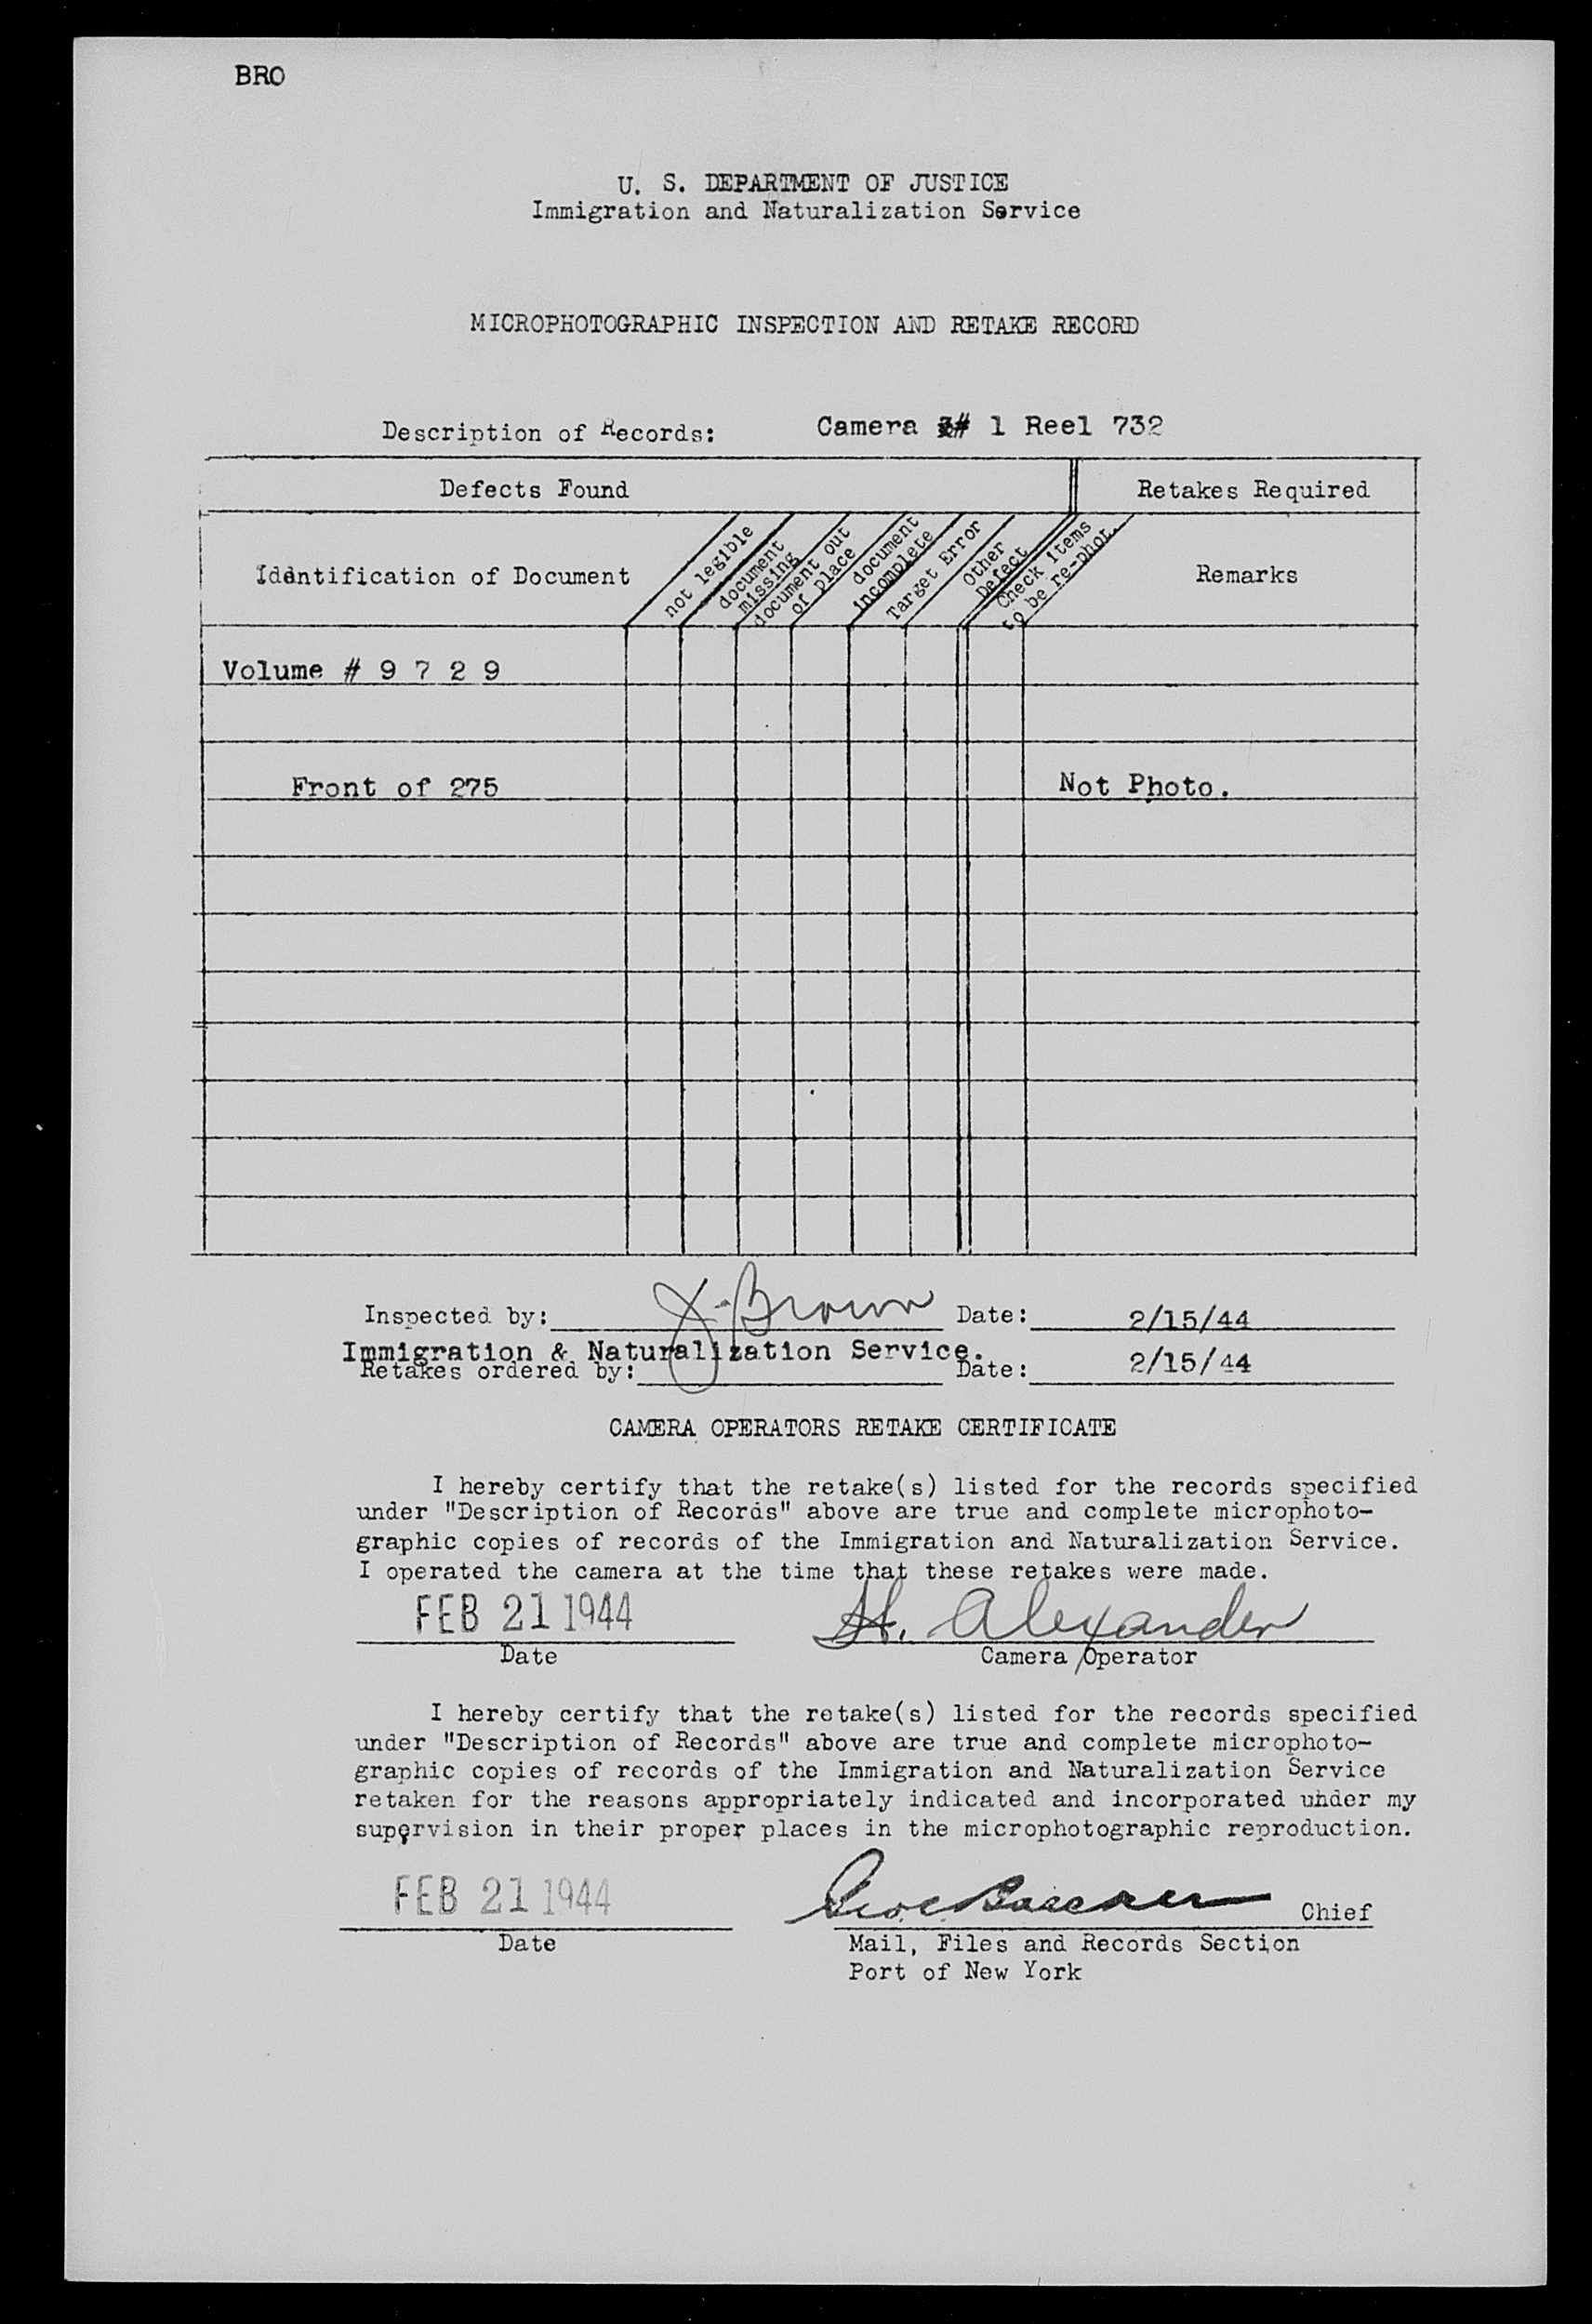 BRO
U. S. DEPARTMENT OF JUSTICE
Immigration and Naturalization Service
MICROPHOTOGRAPHIC INSPECTION AND RETAKE RECORD
Description of Records: Camera # 1 Reel 732
Defects Found Retakes Required
Identification of Document
not legible
document missing
document out of place
document incomplete
Target Error
Other Defect
Check items to be re-phot.
Remarks
Volume # 9 7 2 9
Front of 275 Not Photo.
Inspected by: Brown Date: 2/15/44
Immigration & Naturalization Service.
Retakes ordered by: Date: 2/15/44
CAMERA OPERATORS RETAKE CERTIFICATE
I hereby certify that the retake(s) listed for the records specified
under "Description of Records" above are true and complete microphoto-
graphic copies of records of the Immigration and Naturalization Service.
I operated the camera at the time that these retakes were made.
FEB 21 1944 H. Alexander
Date Camera Operator
I hereby certify that the retake(s) listed for the records specified
under "Description of Records" above are true and complete microphoto-
graphic copies of records of the Immigration and Naturalization Service
retaken for the reasons appropriately indicated and incorporated under my
supervision in their proper places in the microphotographic reproduction.
FEB 21 1944 Chief
Date Mail, Files and Records Section
Port of New York